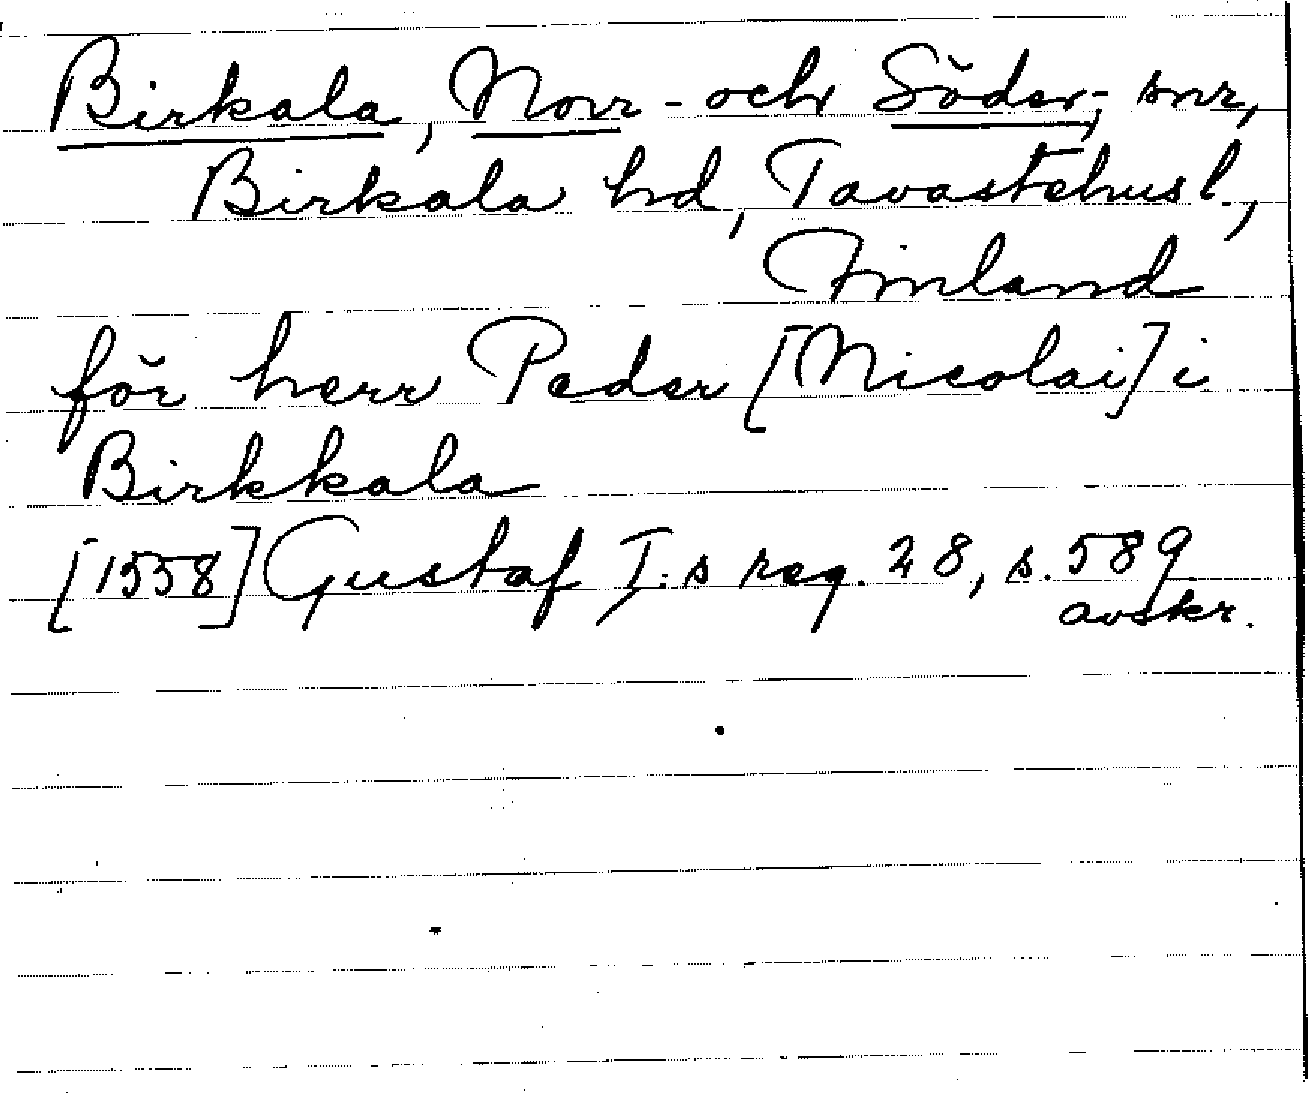 Birkala, Norr- och Söder-, snr,
Birkala hd, Tavastehus l.,
Finland
för herr Peder [Nicolai] i
Birkkala
[1558] Gustaf I:s reg. 28, s. 589
avskr.